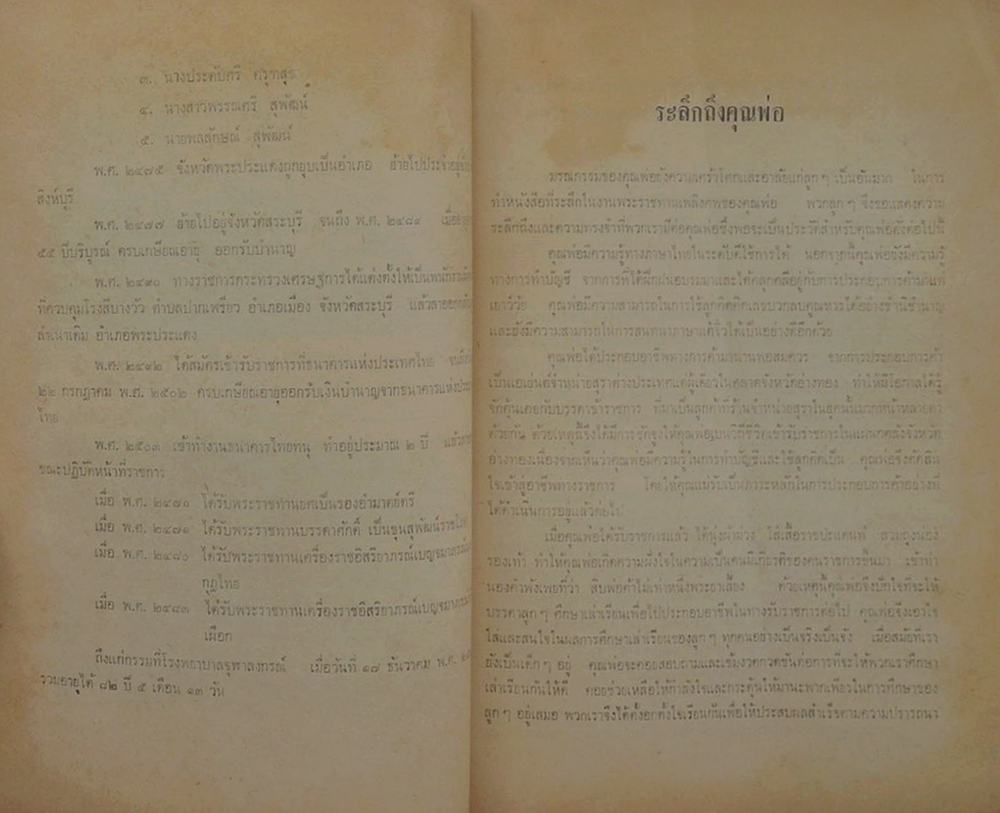 ๓. นางประดับศรี ครุฑสุข
๔. นางสาวพรรณศรี สุพัฒน์
๕. นายพลลักษณ์ สุพัฒน์
พ.ศ. ๒๔๗๕ จังหวัดพระประแดงถูกยุบเป็นอำเภอ ย้ายไปประจำอยู่
สิงห์บุรี
พ.ศ. ๒๔๗๗ ย้ายไปอยู่จังหวัดสระบุรี จนถึง พ.ศ. ๒๔๘๙ เมื่อ
๕๕ ปีบริบูรณ์ ครบเกษียณอายุ ออกรับบำนาญ
พ.ศ. ๒๔๙๐ ทางราชการกระทรวงเศรษฐการได้แต่งตั้งให้เป็น
ที่ควบคุมโรงสีบางวัว ตำบลปากเพรียว อำเภอเมือง จังหวัดสระบุรี แล้ว
ลำเนาเดิม อำเภอพระประแดง
พ.ศ. ๒๔๙๒ ได้สมัครเข้ารับราชการที่ธนาคารแห่งประเทศไทย
๒๒ กรกฎาคม พ.ศ. ๒๕๐๒ ครบเกษียณอายุออกรับเงินบำนาญจากธนาคารแห่ง
ไทย
พ.ศ. ๒๕๐๓ เข้าทำงานธนาคารไทยทนุ ทำอยู่ประมาณ ๒ ปี
ขณะปฏิบัติหน้าที่ราชการ
เมื่อ พ.ศ. ๒๔๗๐ ได้รับพระราชทานยศเป็นรองอำมาตย์ตรี
เมื่อ พ.ศ. ๒๔๗๑ ได้รับพระราชทานบรรดาศักดิ์ เป็นขุนสุพัฒน์
เมื่อ พ.ศ. ๒๔๘๐ ได้รับพระราชทานเครื่องราชอิสริยาภรณ์เบญจมาภรณ์
กุฎไทย
เมื่อ พ.ศ. ๒๔๘๓ ได้รับพระราชทานเครื่องราชอิสริยาภรณ์เบญจมาภรณ์
เผือก
ถึงแก่กรรมที่โรงพยาบาลจุฬาลงกรณ์ เมื่อวันที่ ๑๗ ธันวาคม พ.ศ.
รวมอายุได้ ๘๒ ปี ๕ เดือน ๑๓ วัน
ระลึกถึงคุณพ่อ
มรณกรรมของคุณพ่อยังความเศร้าโศกและอาลัยแก่ลูก ๆ เป็นอันมาก ในการ
ทำหนังสือที่ระลึกในงานพระราชทานเพลิงศพของคุณพ่อ พวกลูก ๆ จึงขอแสดงความ
ระลึกถึงและความทรงจำที่พวกเรามีต่อคุณพ่อซึ่งพอจะเป็นประวัติสำหรับคุณพ่อดังต่อไปนี้
คุณพ่อมีความรู้ทางภาษาไทยในระดับดีใช้การได้ นอกจากนี้คุณพ่อยังมีความรู้
ทางการทำบัญชี จากการที่ได้ฝึกฝนอบรมมาและได้คลุกคลีอยู่กับการประกอบการค้ามาแต่
เยาว์วัย คุณพ่อมีความสามารถในการใช้ลูกคิดคิดเลขบวกลบคูณหารได้อย่างชำนิชำนาญ
และยังมีความสามารถในการสนทนาภาษาแต้จิ๋วได้เป็นอย่างดีอีกด้วย
คุณพ่อได้ประกอบอาชีพทางการค้ามานานพอสมควร จากการประกอบการค้า
เป็นเอเย่นต์จำหน่ายสุราต่างประเทศแต่ผู้เดียวในตลาดจังหวัดอ่างทอง ทำให้มีโอกาสได้รู้
จักคุ้นเคยกับบรรดาข้าราชการ ที่มาเป็นลูกค้าที่ร้านจำหน่ายสุราในยุคนั้นมากหน้าหลายตา
ด้วยกัน ด้วยเหตุนี้จึงได้มีการชักจูงให้คุณพ่อเบนวิถีชีวิตเข้ารับราชการในแผนกคลังจังหวัด
อ่างทองเนื่องจากเห็นว่าคุณพ่อมีความรู้ในการทำบัญชีและใช้ลูกคิดเป็น คุณพ่อจึงตัดสิน
ใจเข้าสู่อาชีพทางราชการ โดยให้คุณแม่รับเป็นภาระหลักในการประกอบการค้าอย่างที่
ได้ดำเนินการอยู่แล้วต่อไป
เมื่อคุณพ่อได้รับราชการแล้ว ได้นุ่งผ้าม่วง ใส่เสื้อราชปะแตนท์ สวมถุงน่อง
รองเท้า ทำให้คุณพ่อเกิดความฝังใจในความเป็นคนมีเกียรติของคนราชการขึ้นมา เข้าทำ
นองคำพังเพยที่ว่า สิบพ่อค้าไม่เท่าหนึ่งพระยาเลี้ยง ด้วยเหตุนี้คุณพ่อจึงปักใจที่จะให้
บรรดาลูก ๆ ศึกษาเล่าเรียนเพื่อไปประกอบอาชีพในทางรับราชการต่อไป คุณพ่อจึงเอาใจ
ใส่และสนใจในผลการศึกษาเล่าเรียนของลูก ๆ ทุกคนอย่างเป็นจริงเป็นจัง เมื่อสมัยที่เรา
ยังเป็นเด็ก ๆ อยู่ คุณพ่อจะคอยสอบถามและเข้มงวดกวดขันต่อการที่จะให้พวกเราศึกษา
เล่าเรียนกันให้ดี คอยช่วยเหลือให้กำลังใจและกระตุ้นให้มานะพากเพียรในการศึกษาของ
ลูก ๆ อยู่เสมอ พวกเราจึงได้ตั้งอกตั้งใจเรียนกันเพื่อให้ประสบผลสำเร็จตามความปรารถนา